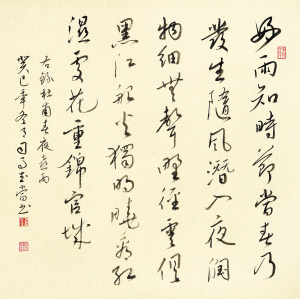 好雨知時節當春乃
發生隨風潛入夜潤
物細無聲野徑雲俱
黑江船火獨明曉看紅
濕處花重錦官城
右錄杜甫春夜喜雨
癸巳年冬月司馬玉常書